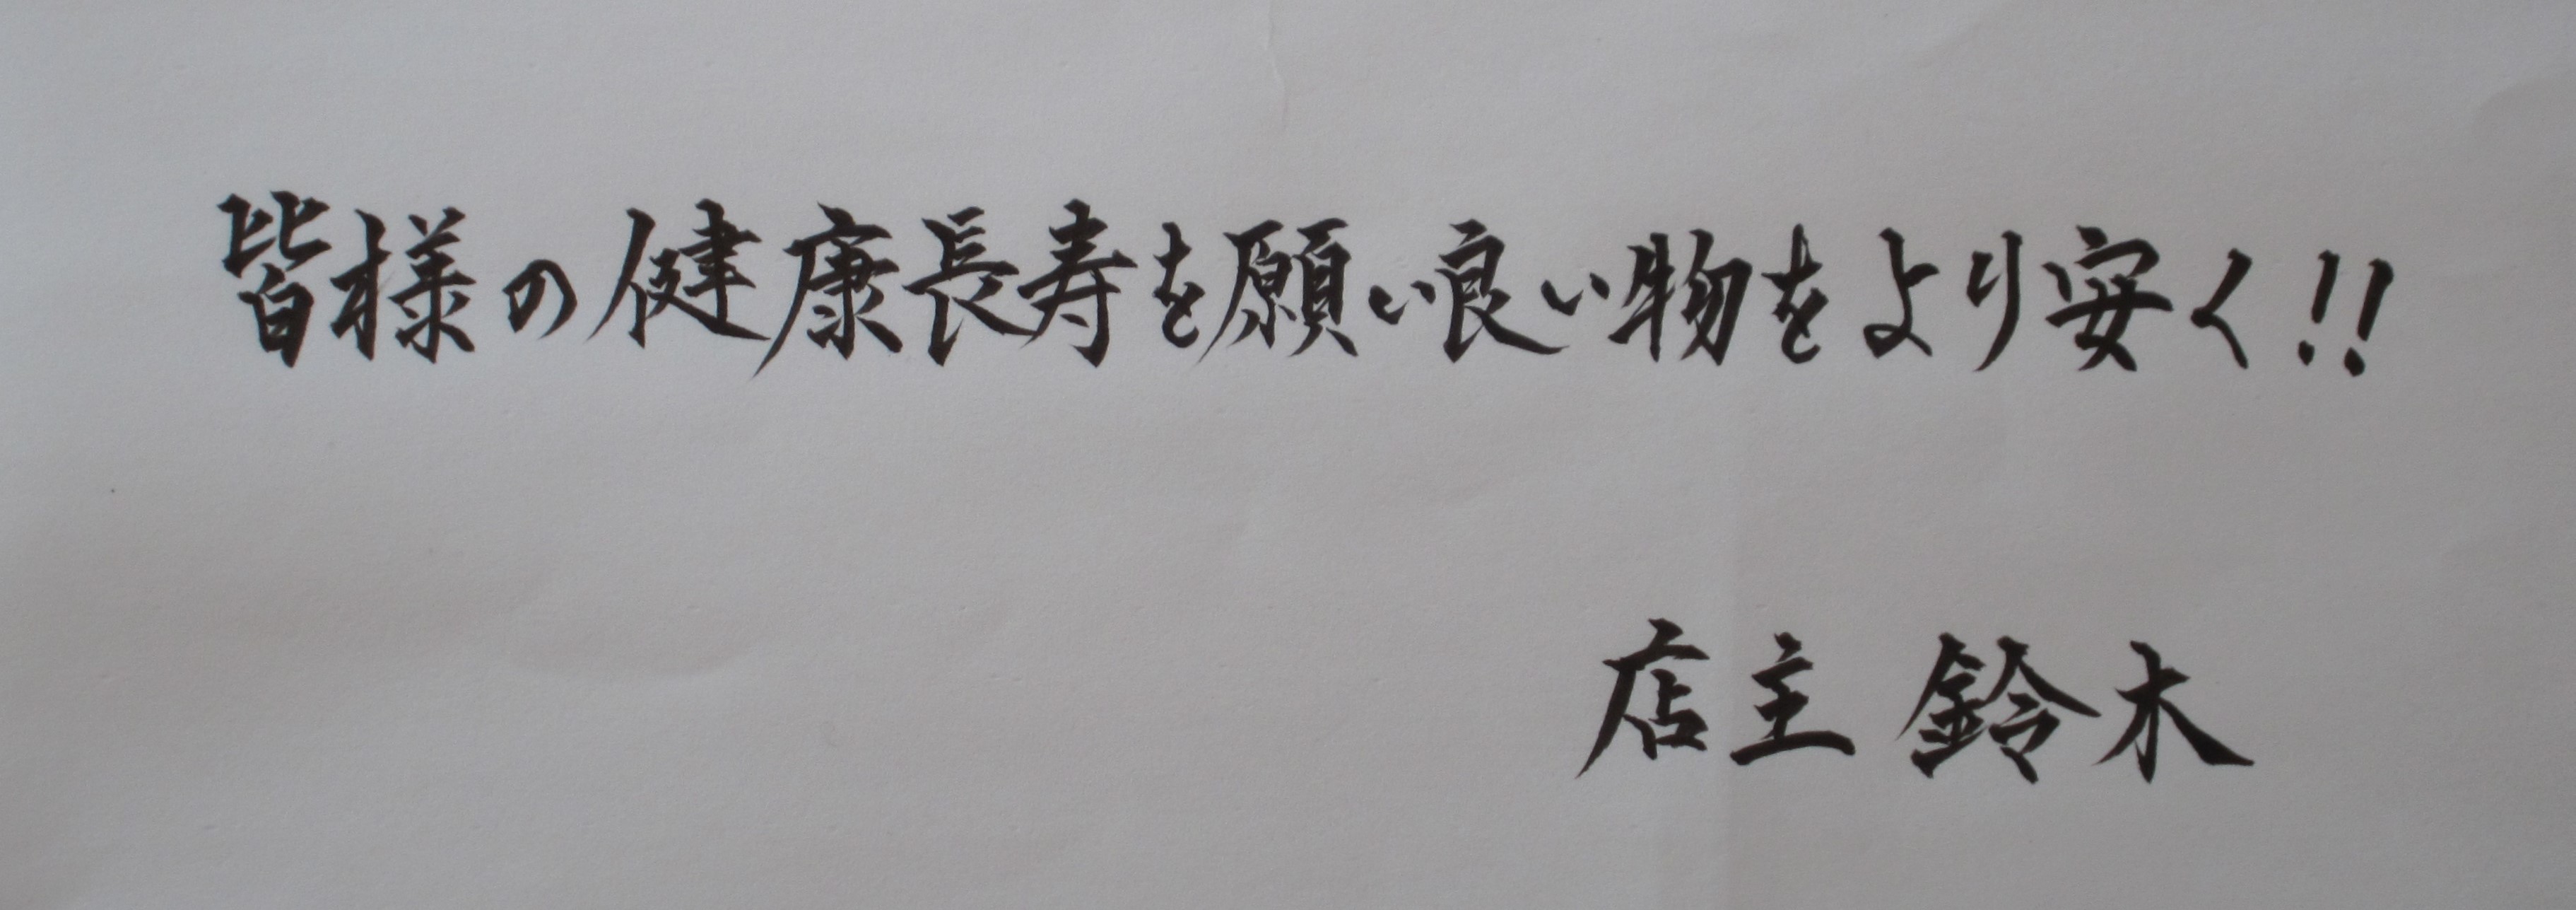 皆様の健康長寿を願い良い物をより安く!!
店主 鈴木